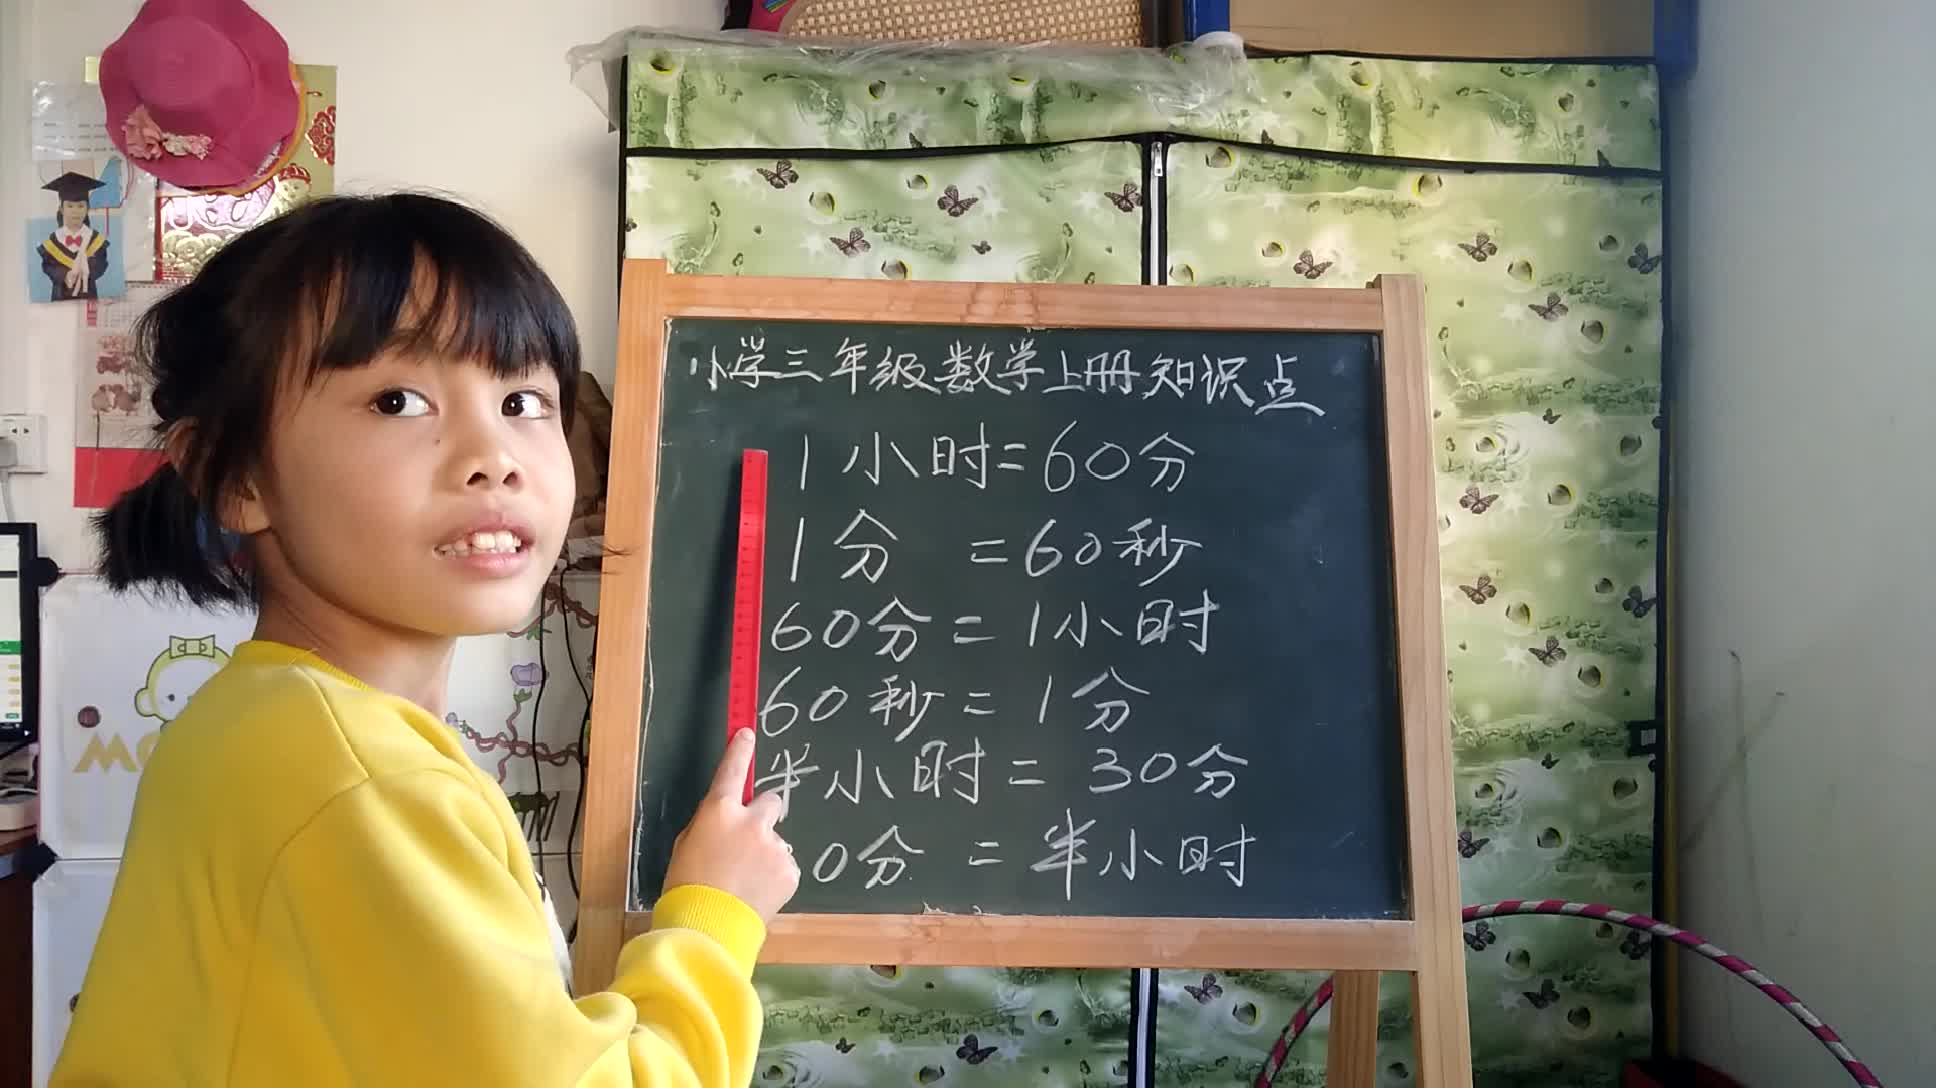 小学三年级数学上册知识点
1小时=60分
1分 =60秒
60分=1小时
60秒=1分
半小时=30分
0分=半小时